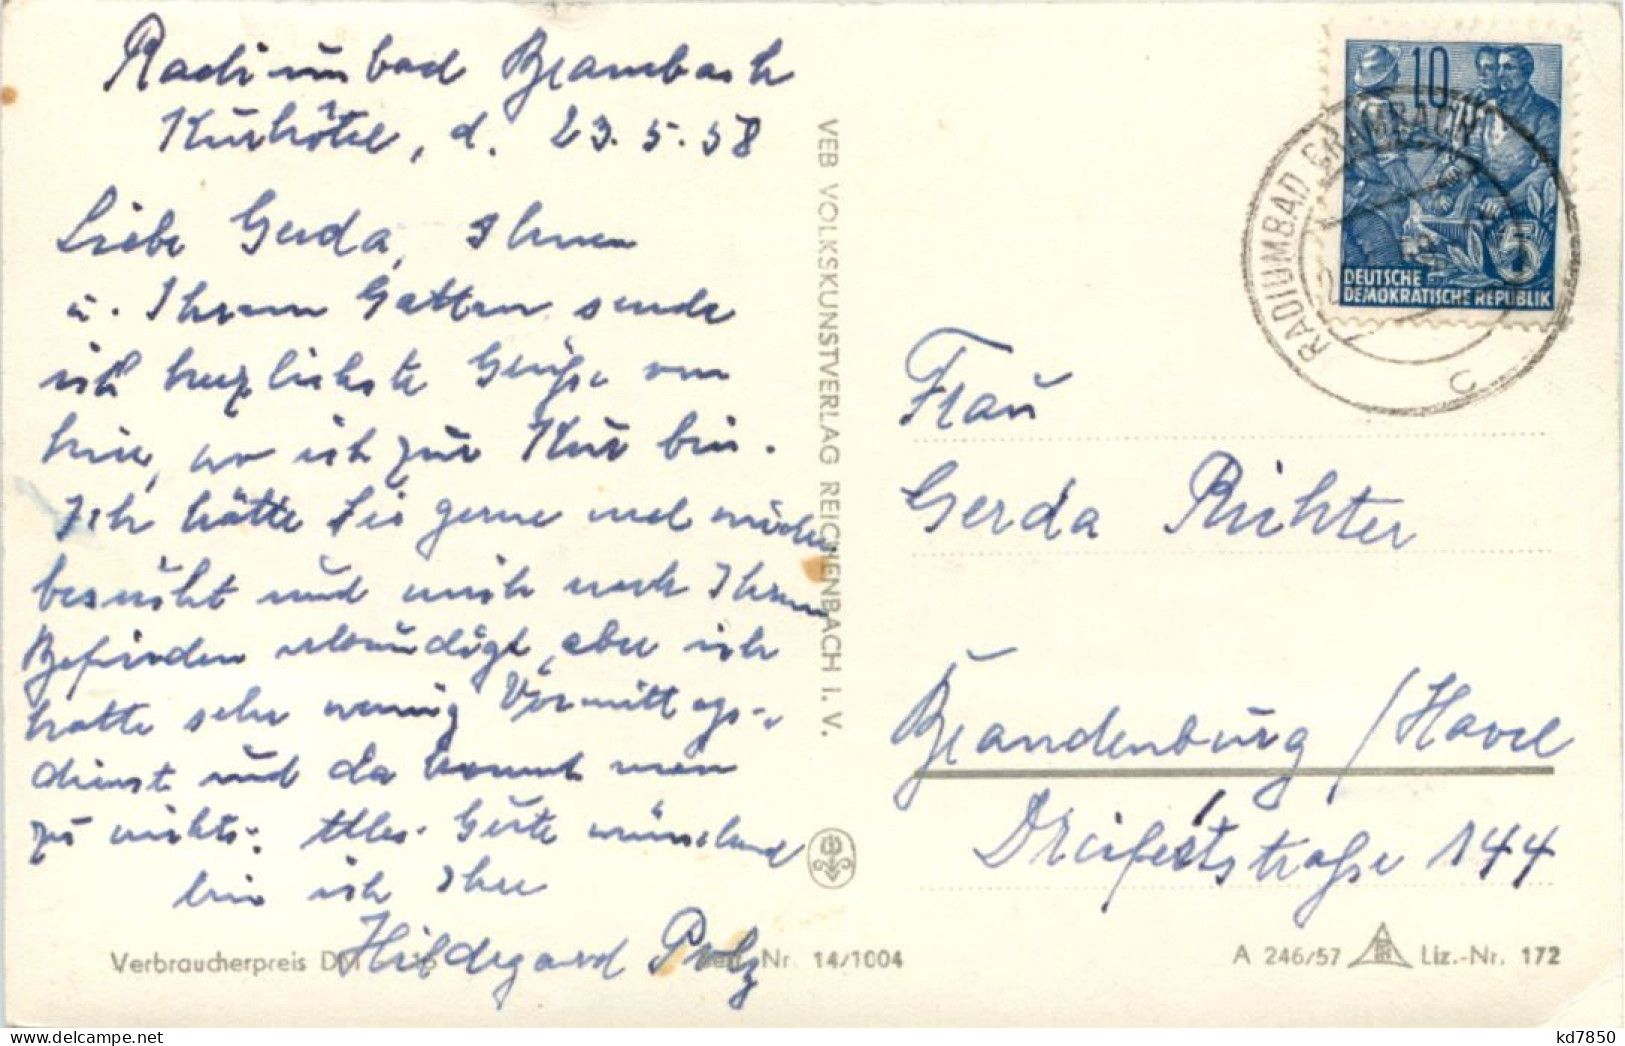 Radiumbad Brambach
Kurhotel, d. 23.5.58
Liebe Gerda, Ihnen
u. Ihrem Gatten sende
ich herzlichste Grüße von
hier, wo ich zur Kur bin.
Ich hätte Sie gerne mal wieder
besucht und mich nach Ihrem
Befinden erkundigt, aber ich
hatte sehr wenig Vormittags-
dienst und da kommt man
zu nichts. Alles Gute wünschend
bin ich Ihre
Hildegard
VEB VOLKSKUNSTVERLAG REICHENBACH I. V.
10
5
DEUTSCHE
DEMOKRATISCHE REPUBLIK
RADIUMBAD BRAMBACH
C
Frau
Gerda Richter
Brandenburg / Havel
Dreifertstraße 144
Verbraucherpreis DM
Nr 14/1004
A 246/57
Liz.-Nr. 172
kd7850